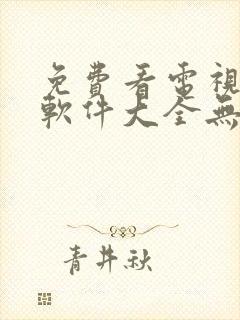 免費看電視
軟件大全無
青井秋